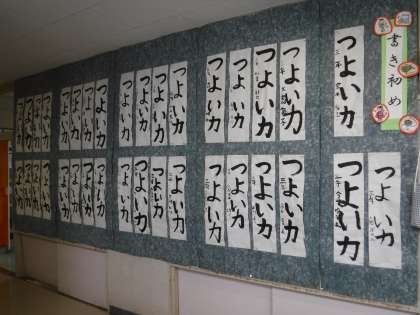 書き初め
つよい力
つよい力
つよい力
つよい力
つよい力
つよい力
つよい力
つよい力
つよい力
つよい力
つよい力
つよい力
つよい力
つよい力
つよい力
つよい力
つよい力
つよい力
つよい力
つよい力
つよい力
つよい力
つよい力
つよい力
つよい力
つよい力
つよい力
つよい力
つよい力
つよい力
つよい力
つよい力
つよい力
つよい力
つよい力